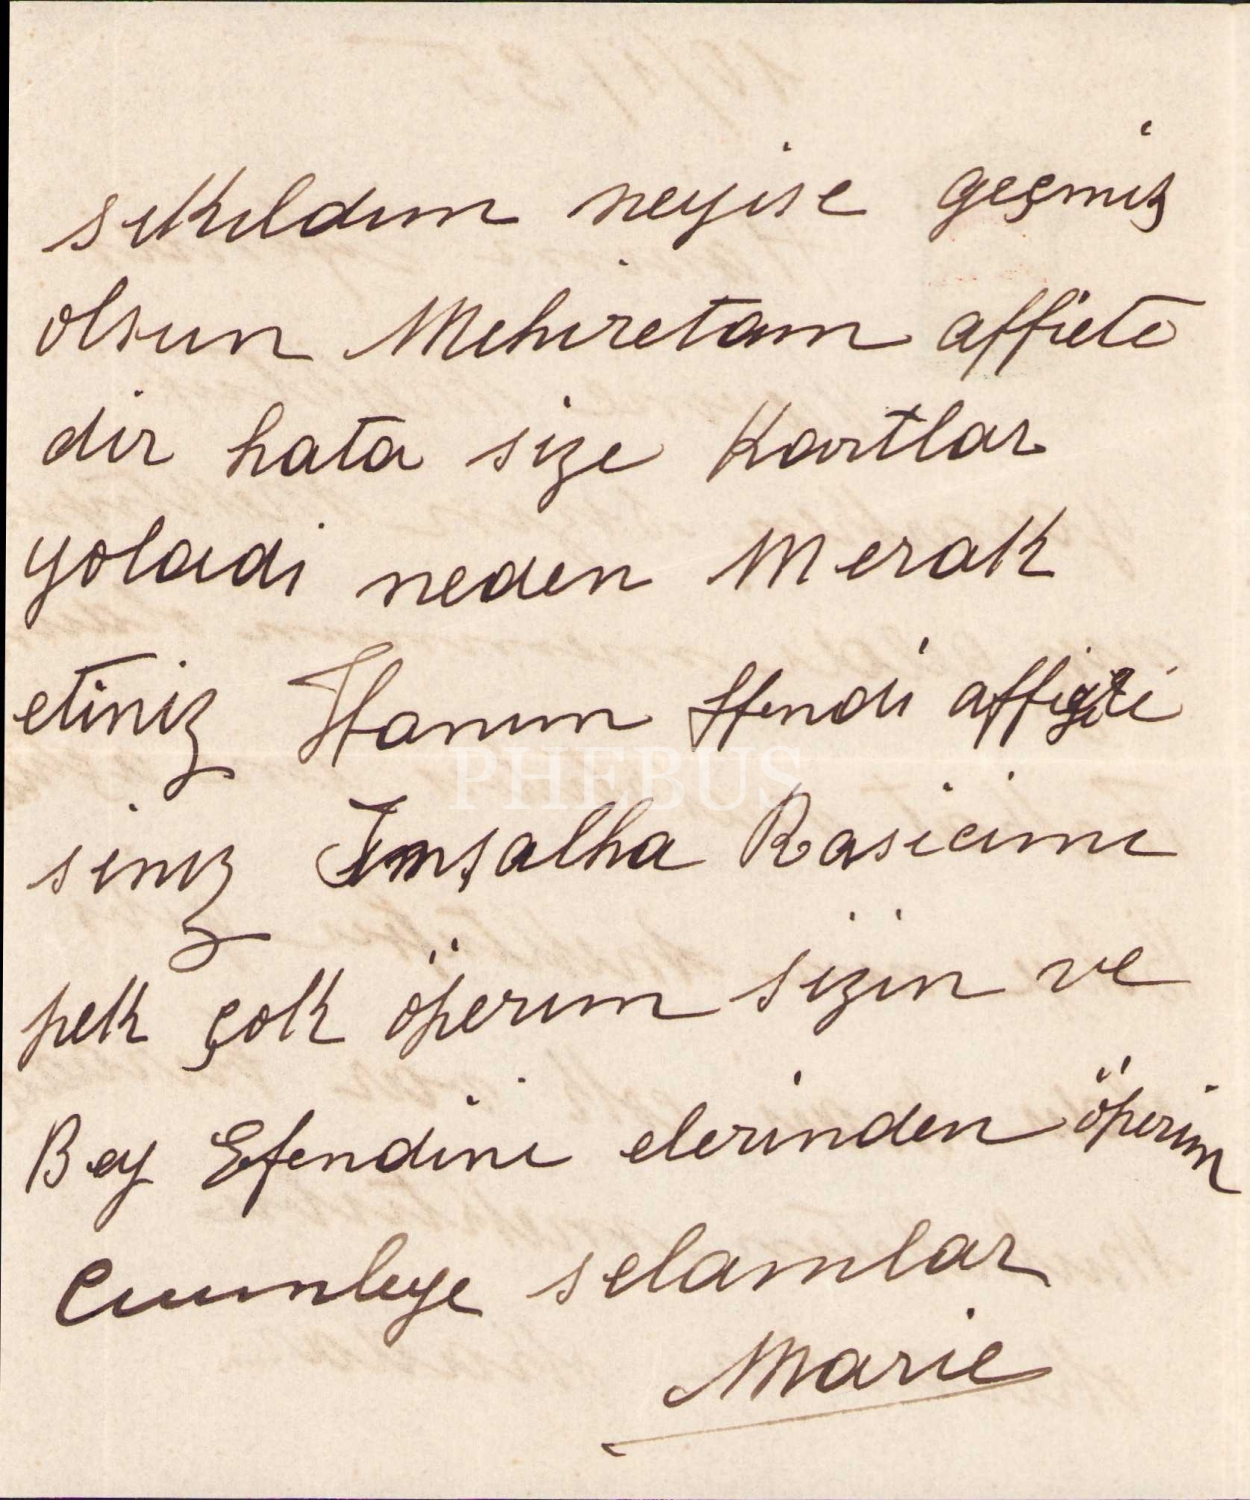 sıkıldım neyise geçmiş
olsun Mehiretam affiete
dir hata size Kartlar
yoladi neden Merak
etiniz Hanım Efendi affiyete
siniz İnşalha Rasicimi
pek çok öperim sizin ve
Bey Efendini elerinden öperim
Cuumleye selamlar
Marie
PHEBUS